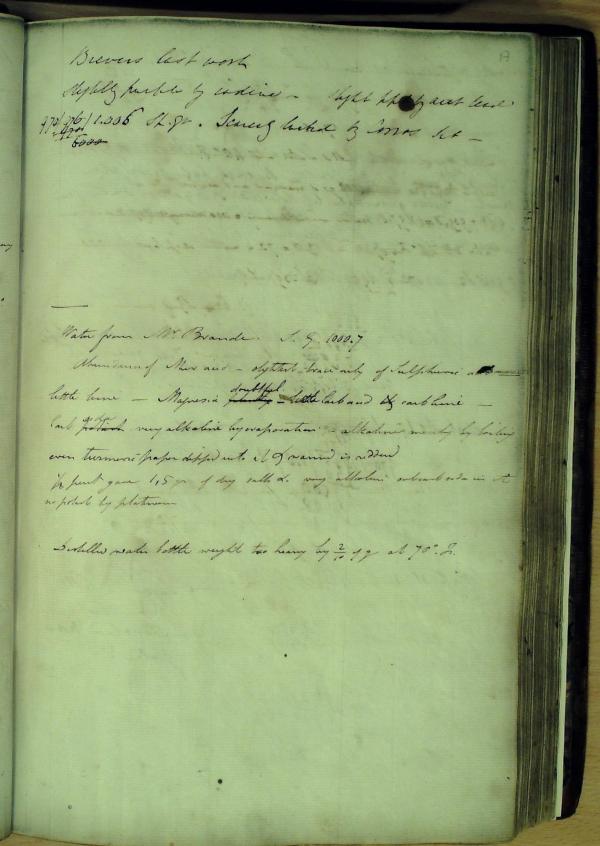 Brewers last work
slightly purple by iodine - slight ppt by acet lead
970/976/1.006 Sp. gr. Scarcely touched by Corros sub -
6000
Water from Mr. Brande. S. G. 1000.7
Abundance of Mur acid - slightest trace only of Sulphuric acid
little lime - Magnesia doubtful - little carb acid & carb lime -
Carb soda very alkaline by evaporation - alkaline merely by boiling
even turmeric paper dipped into it & warmed is reddened
pint gave 1,5 gr of dry salts &c. very alkaline subcarb soda in it
no potash by platinum
Distilled water bottle weight too heavy by 2/10 of gr at 70° F.